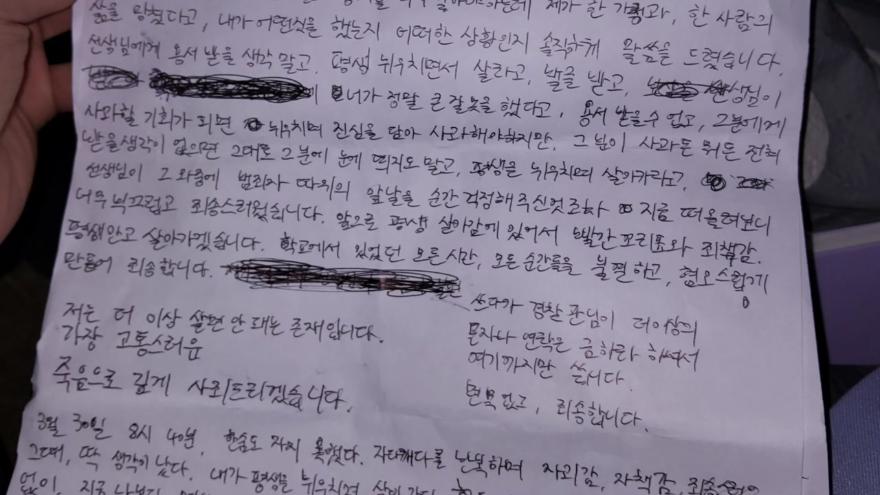 삶을 망쳤다고, 내가 어떤짓을 했는지 어떠한 상황인지 솔직하게 말씀을 드렸습니다.
선생님에게 용서 받을 생각 말고, 평생 뉘우치면서 살라고, 벌을 받고, 선생님이
너가 정말 큰 잘못을 했다고, 용서 받을수 없고, 그분에게
사과할 기회가 되면 뉘우치며 진심을 담아 사과해야하지만, 그 님이 사과든 뭐든 전혀
받을생각이 없으면 그대로 그분에 눈에 띄지도 말고, 평생을 뉘우치며 살아가라고,
선생님이 그 와중에 범죄자 따위의 앞날을 순간 걱정해주신것조차 지금 떠올려보니
너무 부끄럽고 죄송스러웠습니다. 앞으로 평생 살아감에 있어서 빨간 꼬리표와 죄책감.
평생안고 살아가겠습니다. 학교에서 있었던 모든시간, 모든 순간들을 불쾌하고, 혐오스럽게
만들어 죄송합니다.
저는 더 이상 살면 안 돼는 존재입니다.
가장 고통스러운
죽음으로 깊게 사죄드리겠습니다.
쓰다가 경찰관님이 더이상의
문자나 연락은 금하라 하셔서
여기까지만 씁니다.
면목없고, 죄송합니다.
3월 30일 8시 40분, 한숨도 자지 못했다. 자다깨다를 반복하며 자괴감, 자책감,
그때, 딱 생각이 났다. 내가 평생을 뉘우치며
없이